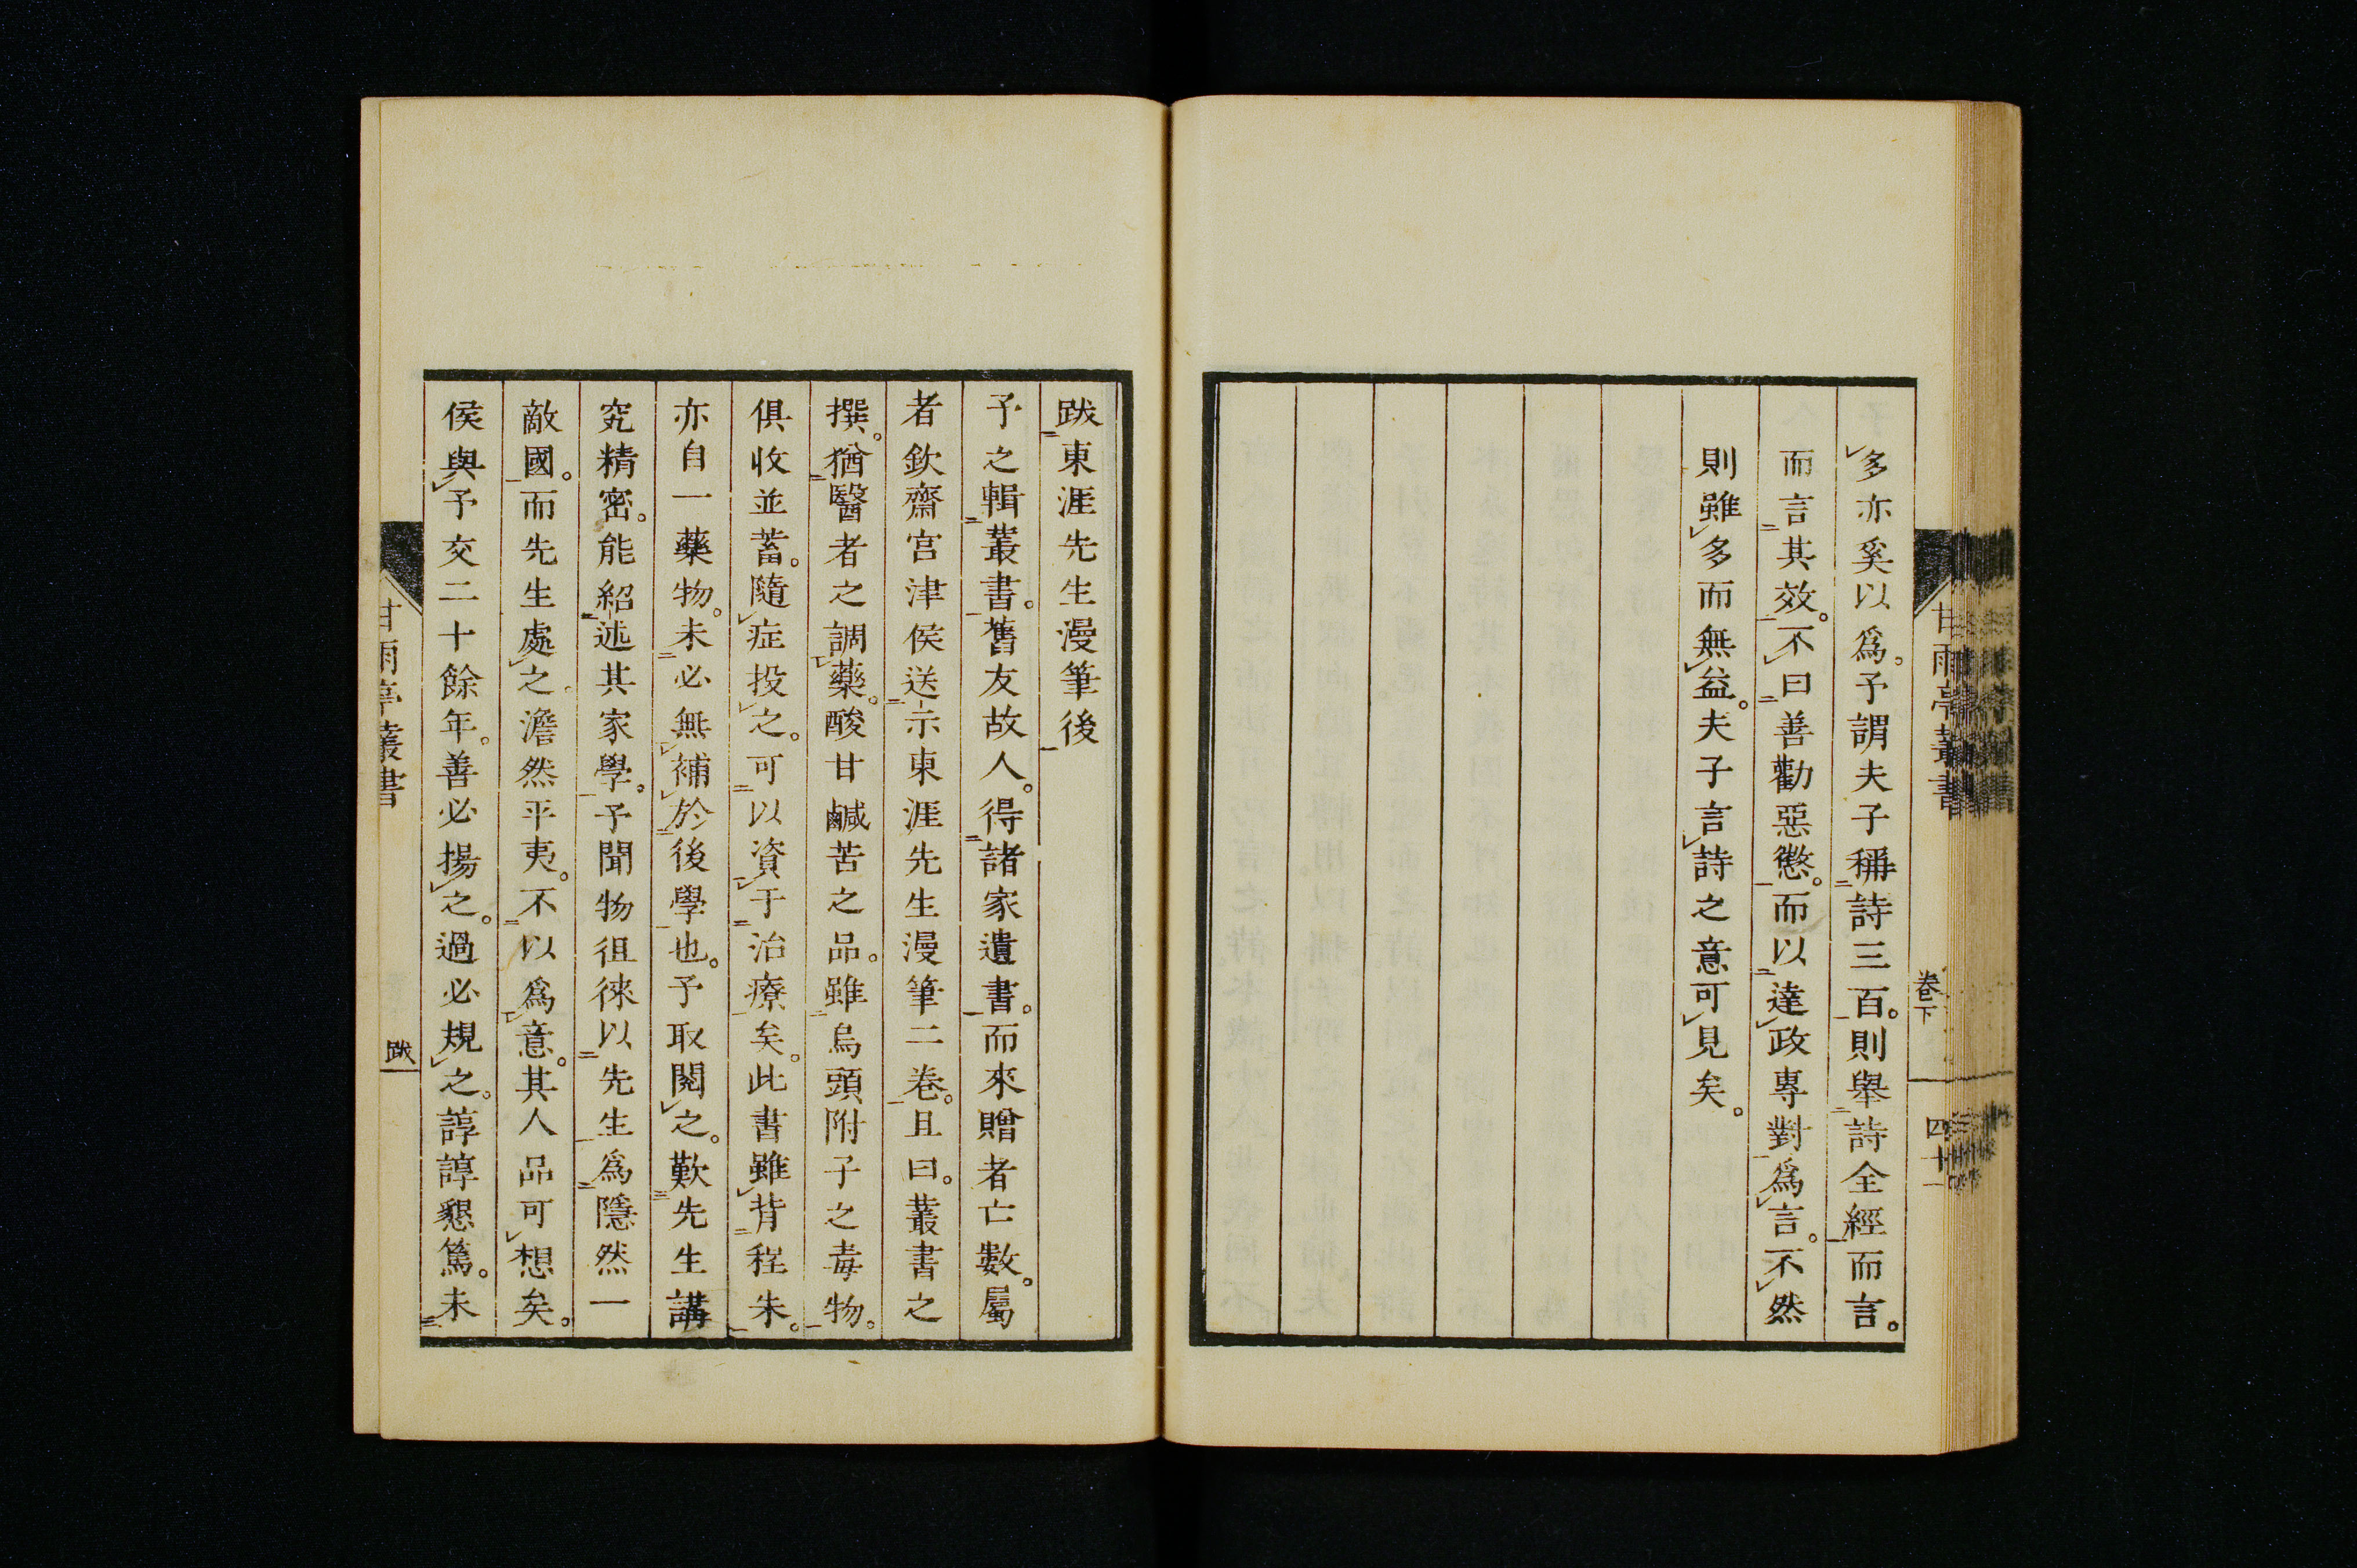 甘雨亭叢書 卷下 四十一
多亦奚以爲。予謂夫子稱詩三百。則舉詩全經而言。
而言其效。不曰善勸惡懲。而以達政專對爲言。不然
則雖多而無益。夫子言詩之意可見矣。
跋東涯先生漫筆後
予之輯叢書。舊友故人。得諸家遺書。而來贈者亡數。屬
者欽齋宮津侯送示東涯先生漫筆二卷。且曰。叢書之
撰。猶醫者之調藥。酸甘鹹苦之品。雖烏頭附子之毒物。
俱收並蓄。隨症投之。可以資于治療矣。此書雖背程朱。
亦自一藥物。未必無補於後學也。予取閱之。歎先生講
究精密。能紹述其家學。予聞物徂徠以先生爲隱然一
敵國。而先生處之。澹然平夷。不以爲意。其人品可想矣。
侯與予交二十餘年。善必揚之。過必規之。諄諄懇篤。未
甘雨亭叢書 跋